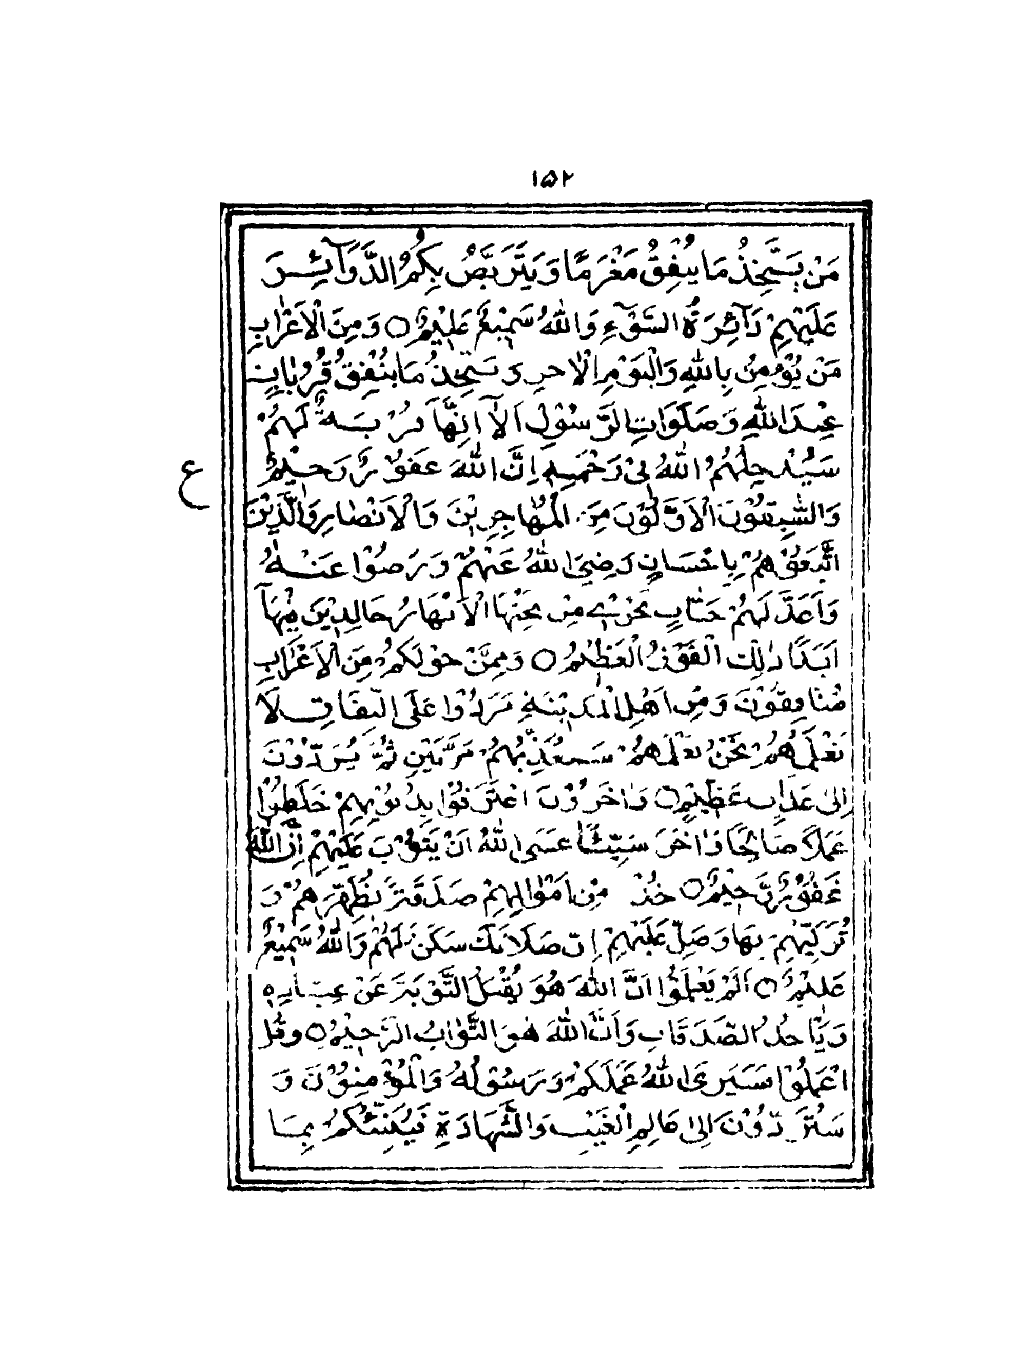 ١٥٢
مَنْ يَتَّخِذُ مَا يُنْفِقُ مَغْرَمًا وَيَتَرَبَّصُ بِكُمُ الدَّوَآئِرَ
عَلَيْهِمْ دَآئِرَةُ السَّوْءِ وَاللّٰهُ سَمِيْعٌ عَلِيْمٌ ○ وَمِنَ الْاَعْرَابِ
مَنْ يُؤْمِنُ بِاللّٰهِ وَالْيَوْمِ الْاٰخِرِ وَيَتَّخِذُ مَا يُنْفِقُ قُرُبَاتٍ
عِنْدَ اللّٰهِ وَصَلَوَاتِ الرَّسُوْلِ اَلَآ اِنَّهَا قُرْبَةٌ لَهُمْ
سَيُدْخِلُهُمُ اللّٰهُ فِيْ رَحْمَتِهٖ اِنَّ اللّٰهَ غَفُوْرٌ رَحِيْمٌ
ع
وَالسّٰبِقُوْنَ الْاَوَّلُوْنَ مِنَ الْمُهَاجِرِيْنَ وَالْاَنْصَارِ وَالَّذِيْنَ
اتَّبَعُوْهُمْ بِاِحْسَانٍ رَضِيَ اللّٰهُ عَنْهُمْ وَرَضُوْا عَنْهُ
وَاَعَدَّ لَهُمْ جَنَّاتٍ تَجْرِيْ مِنْ تَحْتِهَا الْاَنْهَارُ خَالِدِيْنَ فِيْهَآ
اَبَدًا ذٰلِكَ الْفَوْزُ الْعَظِيْمُ ○ وَمِمَّنْ حَوْلَكُمْ مِنَ الْاَعْرَابِ
مُنَافِقُوْنَ وَمِنْ اَهْلِ الْمَدِيْنَةِ مَرَدُوْا عَلَى النِّفَاقِ لَا
تَعْلَمُهُمْ نَحْنُ نَعْلَمُهُمْ سَنُعَذِّبُهُمْ مَرَّتَيْنِ ثُمَّ يُرَدُّوْنَ
اِلٰى عَذَابٍ عَظِيْمٍ ○ وَاٰخَرُوْنَ اعْتَرَفُوْا بِذُنُوْبِهِمْ خَلَطُوْا
عَمَلًا صَالِحًا وَاٰخَرَ سَيِّئًا عَسَى اللّٰهُ اَنْ يَتُوْبَ عَلَيْهِمْ اِنَّ اللّٰهَ
غَفُوْرٌ رَّحِيْمٌ ○ خُذْ مِنْ اَمْوَالِهِمْ صَدَقَةً تُطَهِّرُهُمْ وَ
تُزَكِّيْهِمْ بِهَا وَصَلِّ عَلَيْهِمْ اِنَّ صَلَاتَكَ سَكَنٌ لَهُمْ وَاللّٰهُ سَمِيْعٌ
عَلِيْمٌ ○ اَلَمْ يَعْلَمُوْا اَنَّ اللّٰهَ هُوَ يَقْبَلُ التَّوْبَةَ عَنْ عِبَادِهٖ
وَيَاْخُذُ الصَّدَقَاتِ وَاَنَّ اللّٰهَ هُوَ التَّوَّابُ الرَّحِيْمُ ○ وَقُلِ
اعْمَلُوْا فَسَيَرَى اللّٰهُ عَمَلَكُمْ وَرَسُوْلُهُ وَالْمُؤْمِنُوْنَ وَ
سَتُرَدُّوْنَ اِلٰى عَالِمِ الْغَيْبِ وَالشَّهَادَةِ فَيُنَبِّئُكُمْ بِمَا